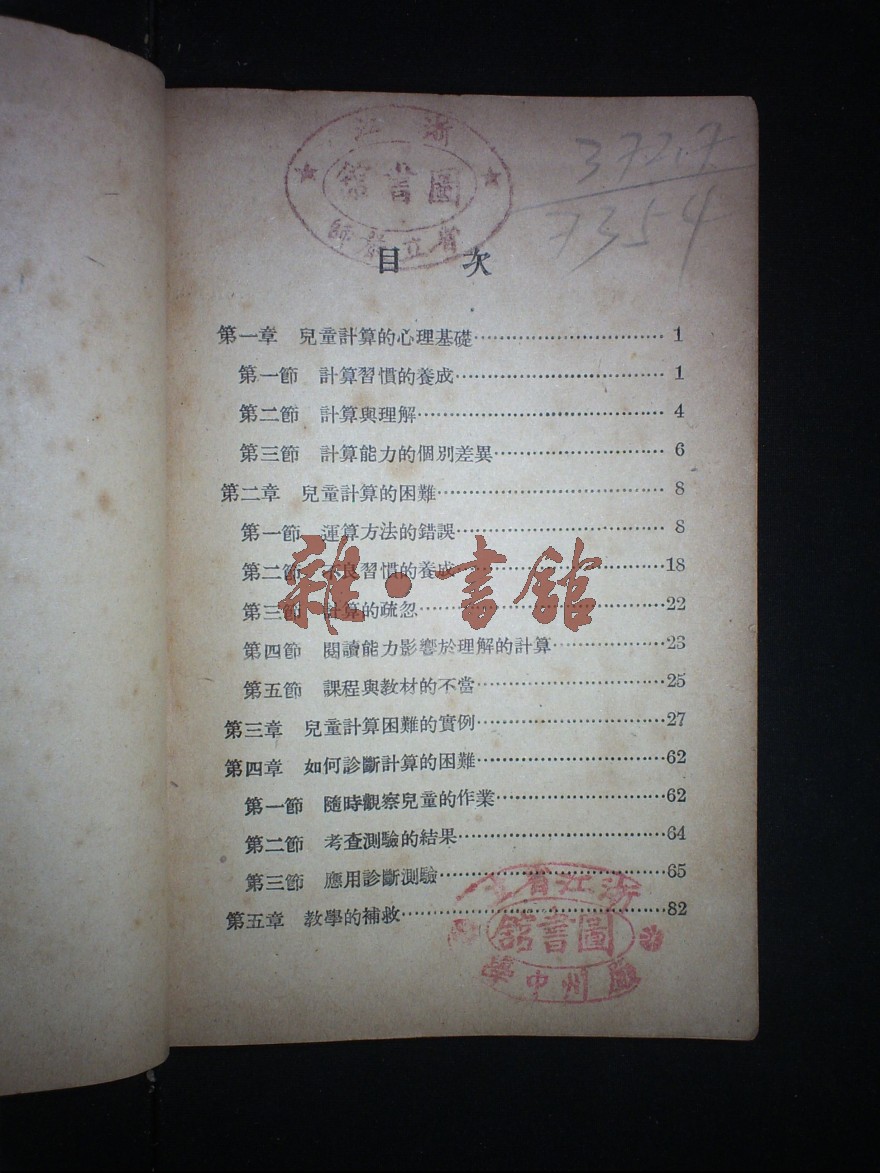 浙江
圖書館
省立嚴師
372.7
7354
目次
第一章 兒童計算的心理基礎…………………………1
第一節 計算習慣的養成…………………………1
第二節 計算與理解…………………………4
第三節 計算能力的個別差異…………………………6
第二章 兒童計算的困難…………………………8
第一節 運算方法的錯誤…………………………8
第二節 不良習慣的養成…………………………18
第三節 計算的疏忽…………………………22
第四節 閱讀能力影響於理解的計算…………………………23
第五節 課程與教材的不當…………………………25
第三章 兒童計算困難的實例…………………………27
第四章 如何診斷計算的困難…………………………62
第一節 隨時觀察兒童的作業…………………………62
第二節 考查測驗的結果…………………………64
第三節 應用診斷測驗…………………………65
第五章 教學的補救…………………………82
雜·書館
浙江省立
圖書館
州中學